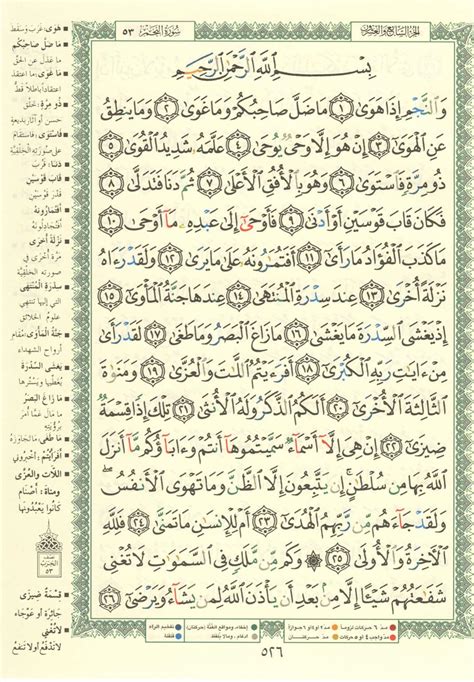 الجزء السابع والعشرون
سُورَةُ النَّجْمِ ٥٣
بِسْمِ ٱللَّهِ ٱلرَّحْمَٰنِ ٱلرَّحِيمِ
وَٱلنَّجْمِ إِذَا هَوَىٰ ١ مَا ضَلَّ صَاحِبُكُمْ وَمَا غَوَىٰ ٢ وَمَا يَنطِقُ
عَنِ ٱلْهَوَىٰٓ ٣ إِنْ هُوَ إِلَّا وَحْىٌ يُوحَىٰ ٤ عَلَّمَهُۥ شَدِيدُ ٱلْقُوَىٰ ٥
ذُو مِرَّةٍ فَٱسْتَوَىٰ ٦ وَهُوَ بِٱلْأُفُقِ ٱلْأَعْلَىٰ ٧ ثُمَّ دَنَا فَتَدَلَّىٰ ٨
فَكَانَ قَابَ قَوْسَيْنِ أَوْ أَدْنَىٰ ٩ فَأَوْحَىٰٓ إِلَىٰ عَبْدِهِۦ مَآ أَوْحَىٰ ١٠
مَا كَذَبَ ٱلْفُؤَادُ مَا رَأَىٰٓ ١١ أَفَتُمَٰرُونَهُۥ عَلَىٰ مَا يَرَىٰ ١٢ وَلَقَدْ رَءَاهُ
نَزْلَةً أُخْرَىٰ ١٣ عِندَ سِدْرَةِ ٱلْمُنتَهَىٰ ١٤ عِندَهَا جَنَّةُ ٱلْمَأْوَىٰٓ ١٥
إِذْ يَغْشَى ٱلسِّدْرَةَ مَا يَغْشَىٰ ١٦ مَا زَاغَ ٱلْبَصَرُ وَمَا طَغَىٰ ١٧ لَقَدْ رَأَىٰ
مِنْ ءَايَٰتِ رَبِّهِ ٱلْكُبْرَىٰٓ ١٨ أَفَرَءَيْتُمُ ٱللَّٰتَ وَٱلْعُزَّىٰ ١٩ وَمَنَوٰةَ
ٱلثَّالِثَةَ ٱلْأُخْرَىٰٓ ٢٠ أَلَكُمُ ٱلذَّكَرُ وَلَهُ ٱلْأُنثَىٰ ٢١ تِلْكَ إِذًا قِسْمَةٌ
ضِيزَىٰٓ ٢٢ إِنْ هِىَ إِلَّآ أَسْمَآءٌ سَمَّيْتُمُوهَآ أَنتُمْ وَءَابَآؤُكُم مَّآ أَنزَلَ
ٱللَّهُ بِهَا مِن سُلْطَٰنٍ ۚ إِن يَتَّبِعُونَ إِلَّا ٱلظَّنَّ وَمَا تَهْوَى ٱلْأَنفُسُ ۖ
وَلَقَدْ جَآءَهُم مِّن رَّبِّهِمُ ٱلْهُدَىٰٓ ٢٣ أَمْ لِلْإِنسَٰنِ مَا تَمَنَّىٰ ٢٤ فَلِلَّهِ
ٱلْـَٔاخِرَةُ وَٱلْأُولَىٰ ٢٥ ۞ وَكَم مِّن مَّلَكٍ فِى ٱلسَّمَٰوَٰتِ لَا تُغْنِى
شَفَٰعَتُهُمْ شَيْـًٔا إِلَّا مِنۢ بَعْدِ أَن يَأْذَنَ ٱللَّهُ لِمَن يَشَآءُ وَيَرْضَىٰٓ ٢٦
هَوَى: غَرَبَ وسَقَطَ
مَا ضَلَّ صَاحِبُكُمْ
ما عَدَلَ عن الحَقِّ
مَا غَوَى: ما اعتقد
باطلاً قطُّ
ذُو مِرَّةٍ:
حسن أو آثار بديعةٍ
فَاسْتَوَى: فاستقامَ
على صورته الخلقيَّة
دَنَا: قَرُبَ
قَابَ قَوْسَيْنِ
قَدْرَ قَوْسَيْنِ
أَفَتُمَارُونَهُ
نَزْلَةً أُخْرَى
مَرَّةً أُخْرَى في
صورته الخلقيَّة
سِدْرَةِ الْمُنْتَهَى
التي إليها تنتهي
علومُ الخلائق
جَنَّةُ الْمَأْوَى: مُقامُ
أرواح الشهداء
يَغْشَى السِّدْرَةَ
يُغَطِّيها ويَسْتُرها
مَا زَاغَ الْبَصَرُ
ما مَالَ عمَّا أُمِرَ
بِرُؤْيَتِهِ
مَا طَغَى: ما تَجَاوَزَهُ
أَفَرَأَيْتُمْ: أخبروني
اللَّاتَ وَالْعُزَّى
وَمَنَاةَ: أصنام
كانوا يَعْبُدُونَها
نصف
الحزب
٥٣
قِسْمَةٌ ضِيزَى
جائِرَةٌ أو عَوْجاء
لَا تُغْنِي
لا تدفعُ أو لا تنفعُ
مدّ ٦ حركات لزوماً
مدّ ٢ أو ٤ أو ٦ جوازاً
إخفاء، ومواقع الغُنَّة (حركتان)
تفخيم الراء
مدّ واجب ٤ أو ٥ حركات
مدّ حركتان
إدغام، وما لا يُلفَظ
قلقلة
٥٢٦